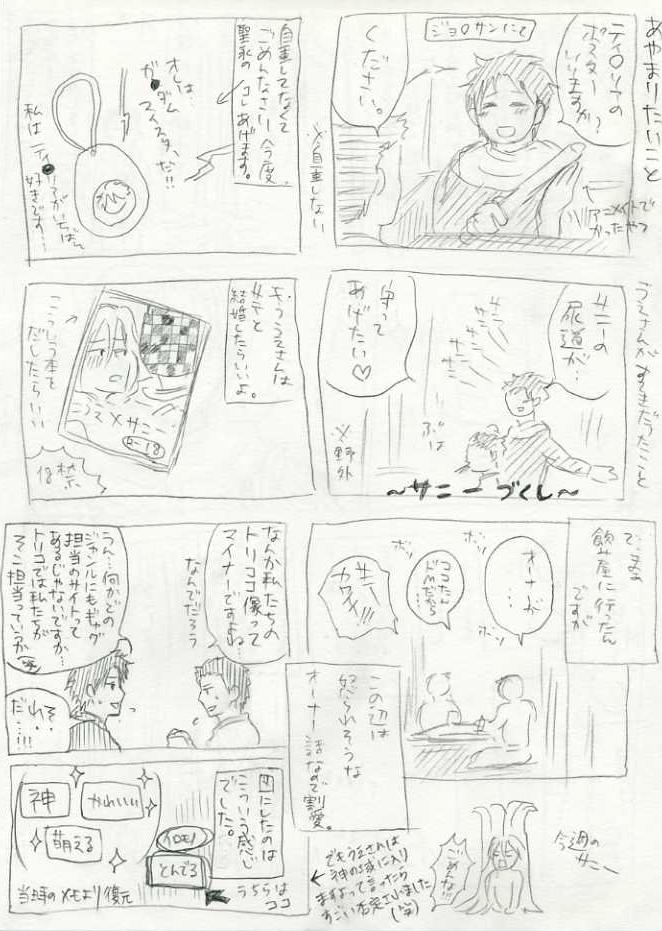 あやまりたいこと
ジョ○サンにて
ティ○リアの
ポスター
いりますか?
ください。
アニメイトで
かったやつ
※自重しない
自重してなくて
ごめんなさい!今度、
聖永の
コレあげます。
オレは、
ガ●ダム
マイスターだ!!
私はティ●
リアがいちばん
好きです…
うえさんがすてきだったこと
サニーの
尿道が…
守って
あげたい♡
サニー
サニー
サニー
サニー
ぶは
※野外
~サニーづくし~
もううえさんは
サニーと
結婚したらいいよ。
こういう本を
だしたらいい
うえ×サニー
R-18
18禁
で、まぁ
飲み屋に行ったん
ですが
オーナーが
…
ボソ
ボソ
ココたん
ドMだから
…
ボソ
サニー
カワユ!!!
この辺は
怒られそうな
オーナー話なので割愛。
なんか私たちの
トリココ像って
マイナーですよね…
なんでだろう
うん…何かどの
ジャンルにもギャグ
担当のサイトって
あるじゃないですか…
トリコでは私たちが
そこ担当っていうか
(笑)
そ、
それ
だ…!!!
図にしたのは
こういう感じ
でした。
神
かわいい
萌える
イロモノ
とんでる
うちらは
ココ
当時のメモより復元
でもうえさんは
神の域に入り
ますよって言ったら
すごい否定されました
(笑)
ごめんな!!
今週の
サニー